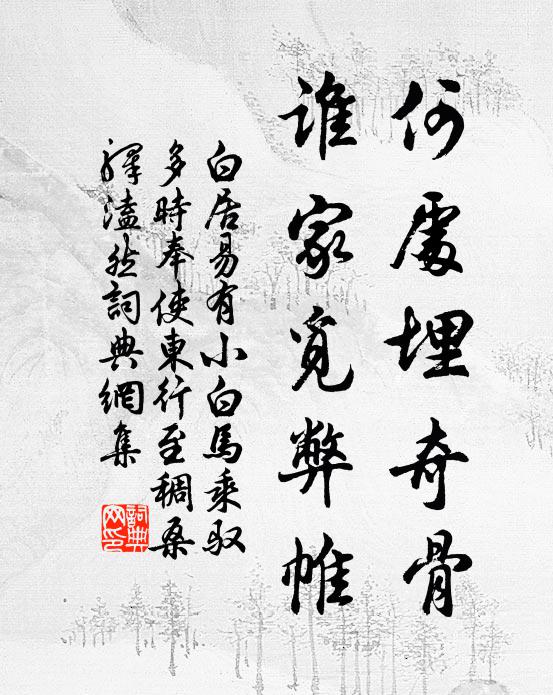 何處埋奇骨
誰家覓弊帷
白居易有小白馬乘馭
多時奉使東行至稠桑
驛溘然詞典網集
詞典
网印